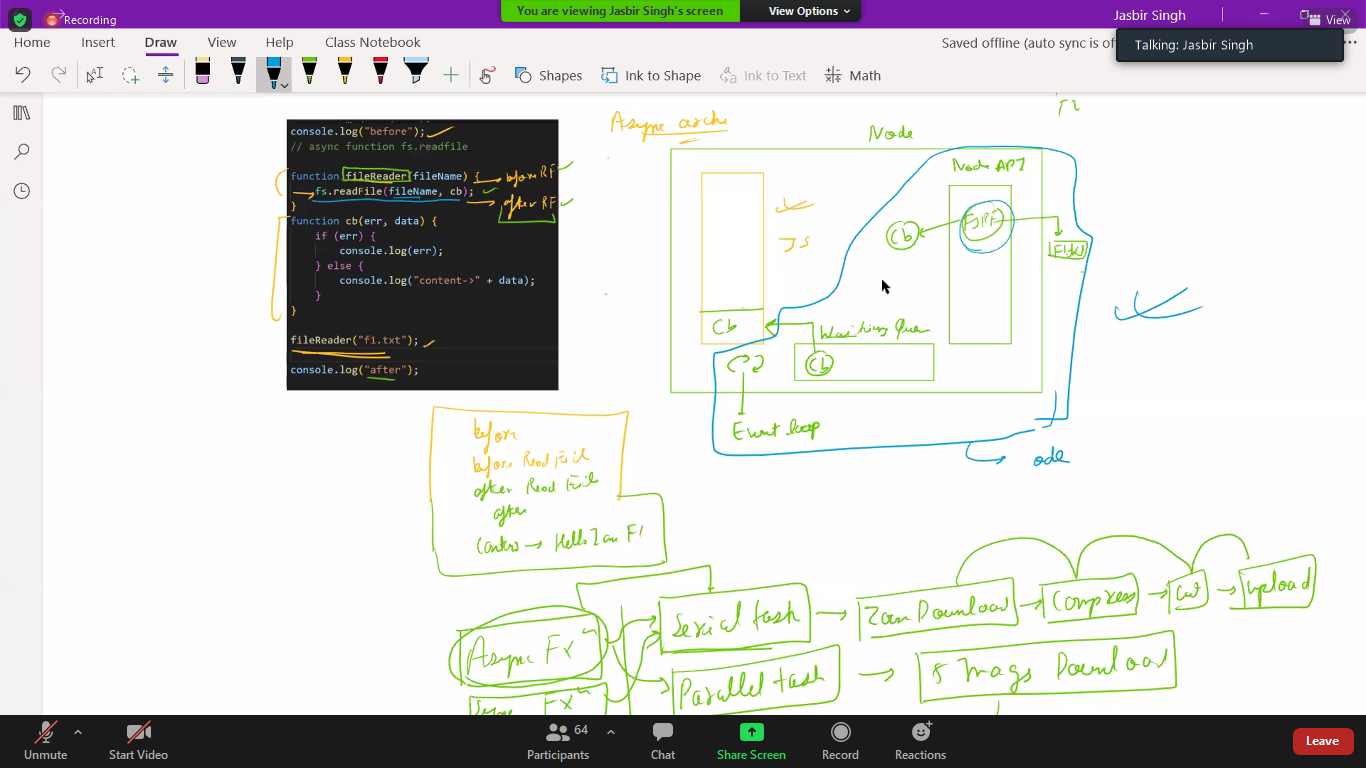 Recording
You are viewing Jasbir Singh's screen
View Options
Jasbir Singh
View
Talking: Jasbir Singh
Home Insert Draw View Help Class Notebook
Saved offline (auto sync is of
Shapes Ink to Shape Ink to Text Math
Async arche
Node
Node API
console.log("before");
// async function fs.readfile
function fileReader(fileName) { before RF
fs.readFile(fileName, cb); after RF
}
function cb(err, data) {
if (err) {
console.log(err);
} else {
console.log("content->" + data);
}
}
fileReader("f1.txt");
console.log("after");
JS
Cb
FSRF
Cb
Waiting Que
Cb
Event loop
ode
before
before Read File
after Read File
after
Hello I am F1
Async Fx
Serial task
Zoom Download
Compress
Cut
Upload
Fx
Parallel task
5 Imags Download
Unmute
Start Video
Participants
64
Chat
Share Screen
Record
Reactions
Leave